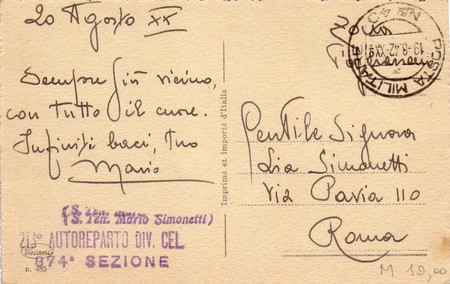 20 Agosto XX
Sempre più vicino,
con tutto il cuore.
Infiniti baci, tuo
Mario
(S. Ten. Mario Simonetti)
213° AUTOREPARTO DIV. CEL.
874ª SEZIONE
n. 485
Imprimé et importé d'Italie
POSTA MILITARE N.
19-8-42 XX
Gentile Signora
Lia Simonetti
Via Pavia 110
Roma
M 19,00